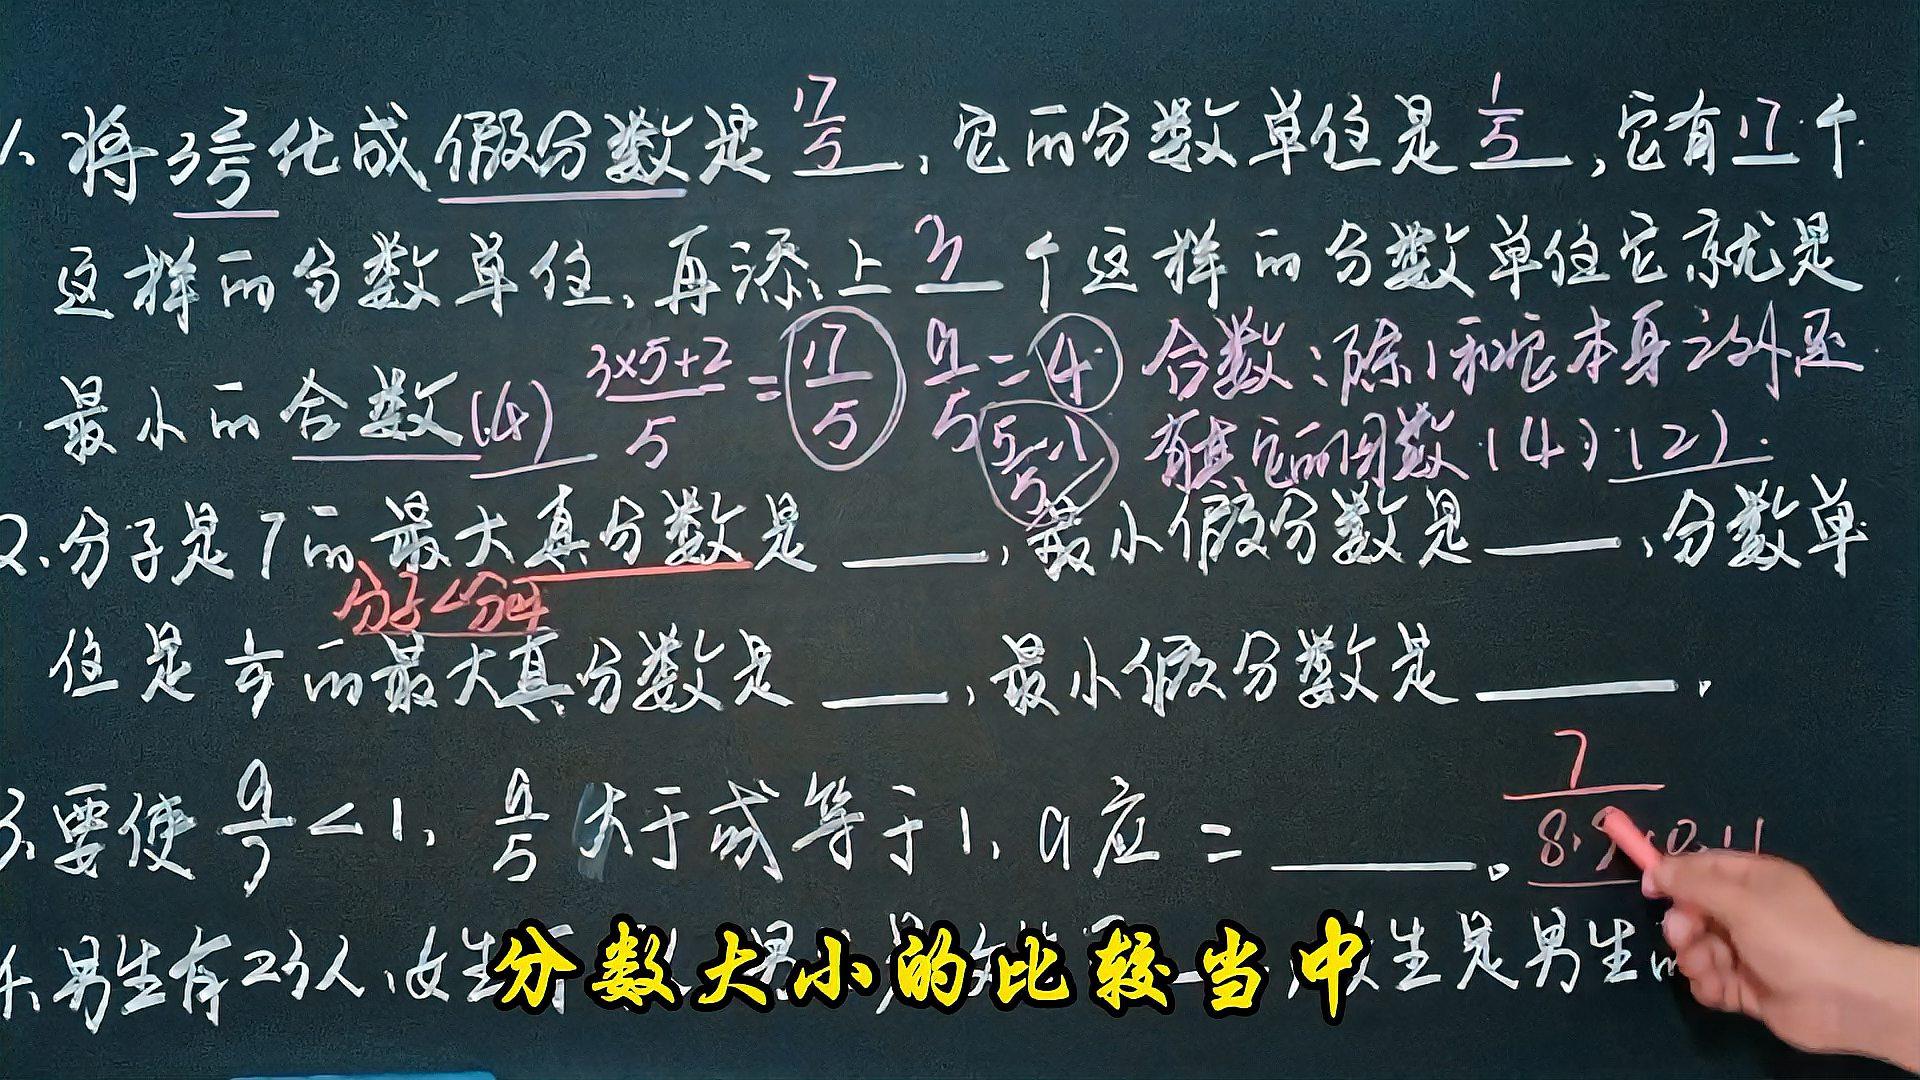 1、将3 2/5 化成假分数是 17/5 ,它的分数单位是 1/5 ,它有17个
这样的分数单位,再添上 3 个这样的分数单位它就是
最小的合数(4) (3×5+2)/5 = 17/5 a/5=4 合数:除1和它本身之外还
5/5=1 有其它的因数(4)(2)
2.分子是7的最大真分数是 ____,最小假分数是____,分数单
分子<分母
位是 的最大真分数是 ____,最小假分数是 ____.
3.要使 a/7 <1, a/5 大于或等于1, a应 = ____。
7
8.9
男生有23人,女生 男 生是男生的
分数大小的比较当中